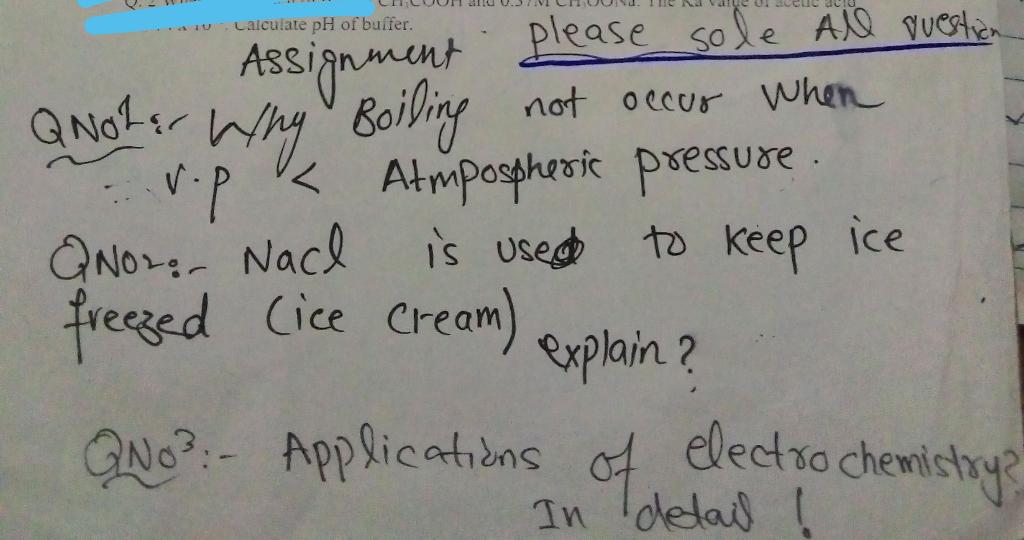 CH₃COOH and 0.57M CH₃OONa. The Ka value of acetic acid
Calculate pH of buffer.
please sole All question
Assignment
QNo1:- Why Boiling not occur When
v.p < Atmpospheric pressure.
QNo2:- Nacl is used to keep ice
freezed (ice cream)
explain?
QNo3:- Applications of electrochemistry?
In detail!